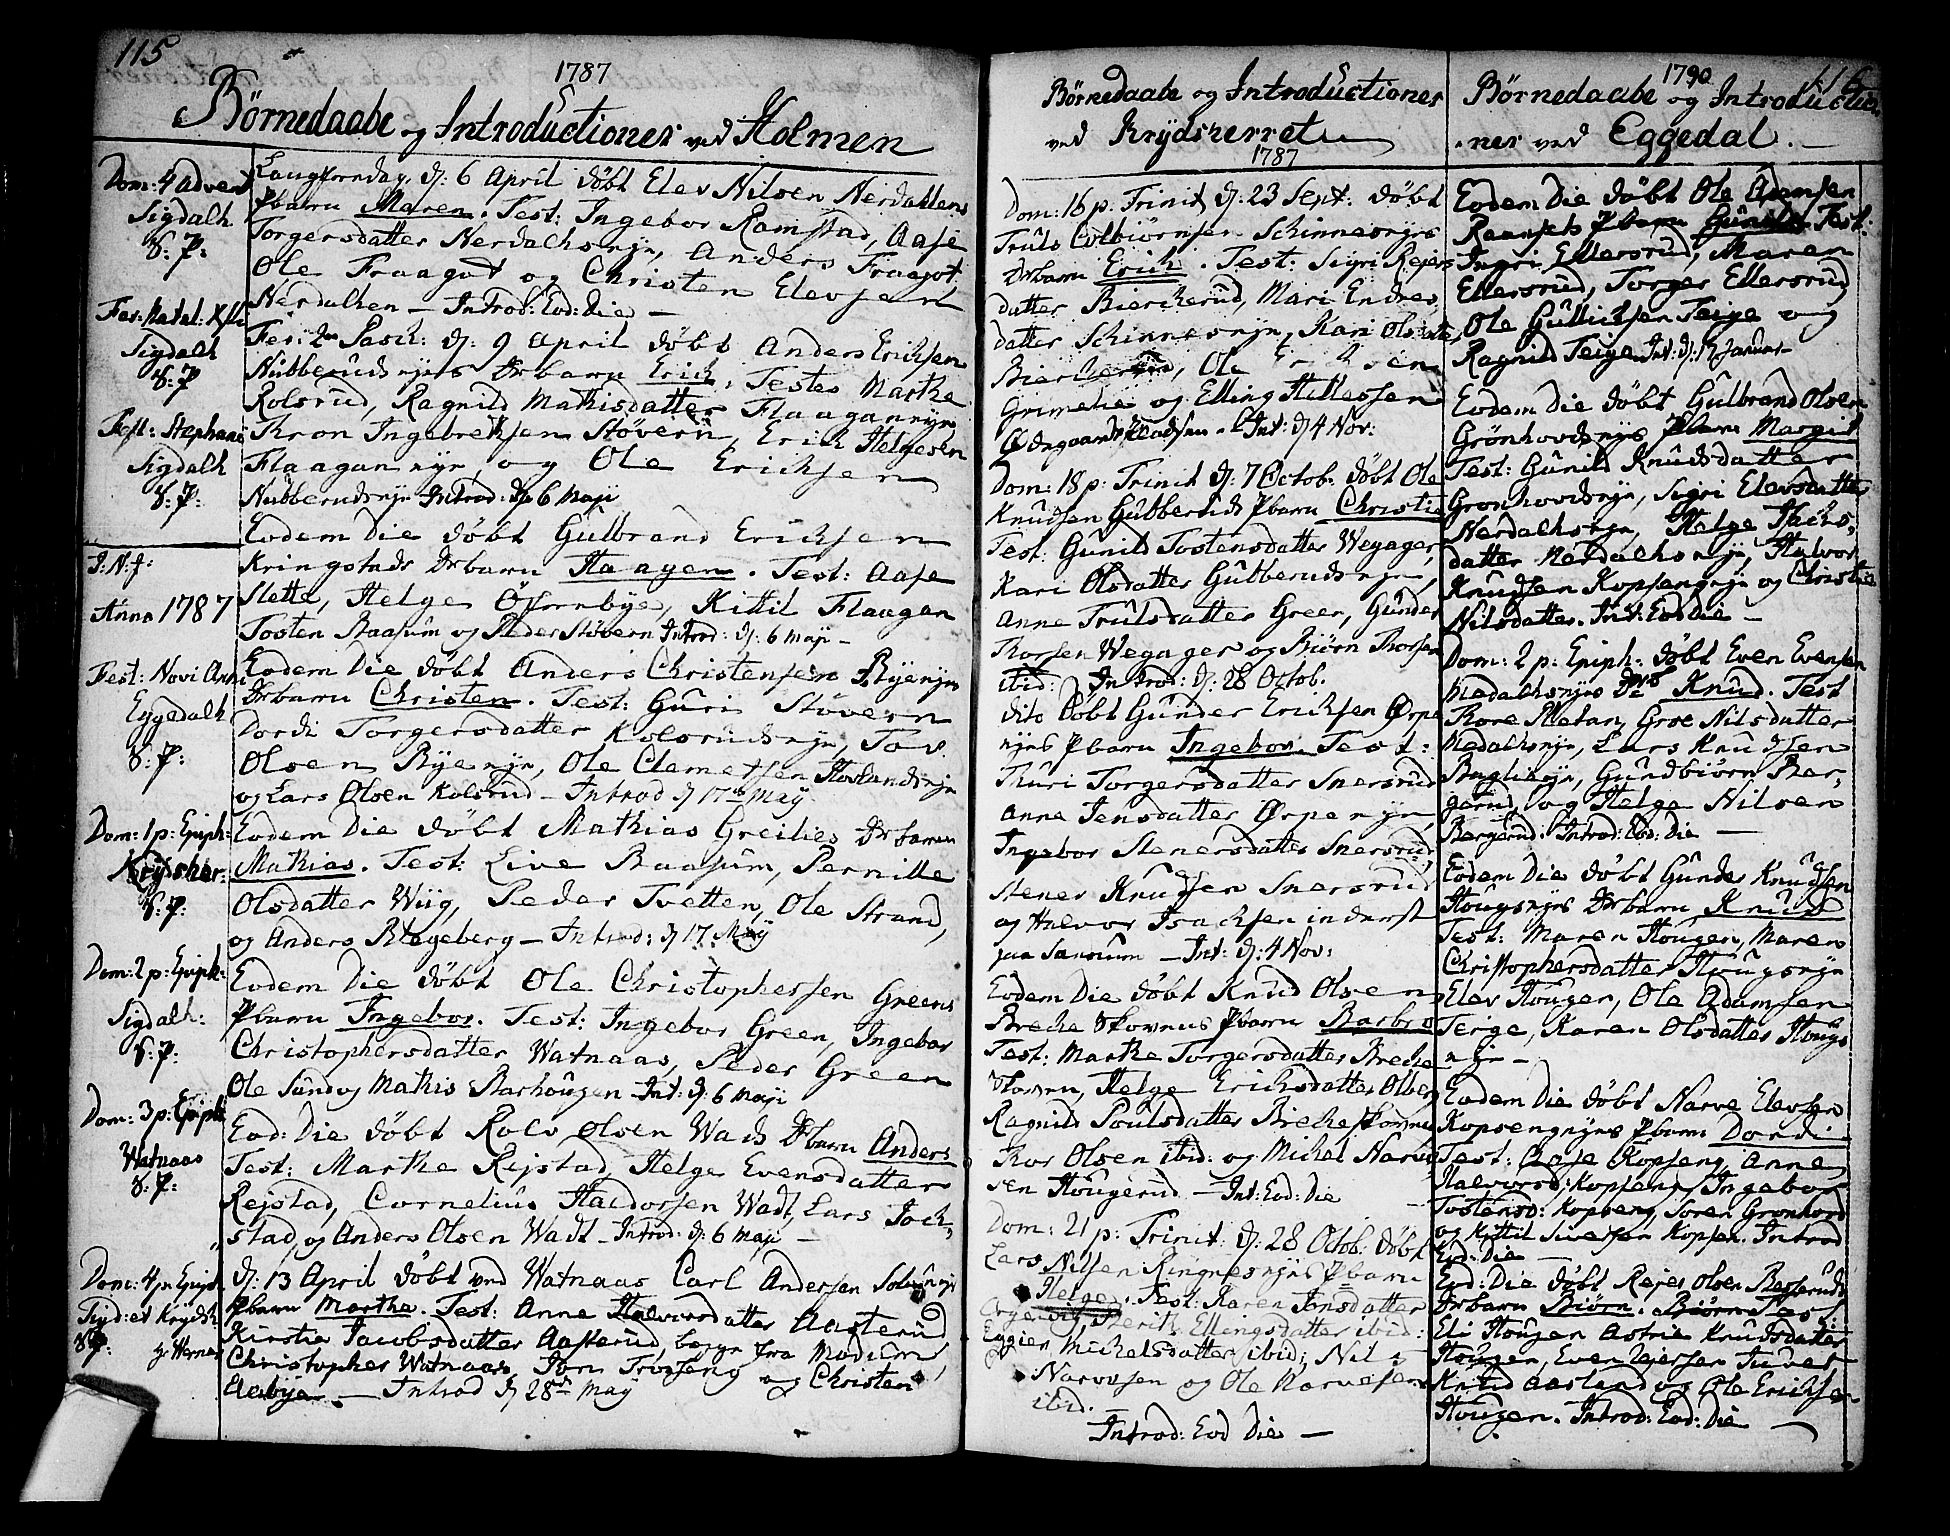 115
1787
Börnedaabe og Introductioner ved Holmen
Dom: 4 Advent
Sigdahl
S: P:
Fer: Natal: Xsti
Sigdahl
S: P
Fest: Stephani
Sigdahl
S: P:
J: N: J:
Anno 1787
Fest: Novi Anni
Eggedahl
S: P:
Dom: 1 p: Epiph:
Krydsher:
S: P:
Dom: 2 p: Epiph:
Sigdahl:
S: P:
Dom: 3 p: Epiph
Watnaas
S: P:
Dom: 4 p: Epiph
Sigd: et Krydsh
S: P:
Langfreday, d: 6 April döbt Elev Nilsen Nerdahlens
Pbarn Maren. Test: Ingebor Ramstad, Aase
Torgersdatter Nerdahlsnyn, Anders Fraagot,
Ole Fraagot og Christen Elevsen
Nerdalhen — Introd: Eod: die —
Fer: 2 Pasch: d: 9 April döbt Anders Erichsen
Nubberudsnyns Drbarn Erich, Testes Marthe
Kolsrud, Ragnild Mathisdatter Flaagannyn
Thron Ingebrehtsen Stövern, Erich Helgesen
Flaagan nyn, og Ole Erichsen
Nubberudsnyn Introd: d: 6 Maji
Eodem Die döbt Gulbrand Erichsen
Kringstads Drbarn Haagen. Test: Aase
Slette, Helge Östernbye, Kittil Flaagan
Tosten Baasum og Peder Stövern Introd: d: 6 Maji —
Eodem Die döbt Anders Christensen Byenyn
Drbarn Christen. Test: Guri Stövern
Dordi Torgersdatter Kolsrudsnyn, Tov
Olsen Byenyn, Ole Clemetsen Hovlandsnyn
og Lars Olsen Kolsrud — Introd d 17 May
Eodem Die döbt Mathias Greilies Drbarn
Mathias. Test: Live Baasum, Pernille
Olsdatter Wiig, Peder Tvetten, Ole Strand,
og Anders Blegeberg — Introd: d 17 May
Eodem Die döbt Ole Christophersen Greens
Pbarn Ingebor. Test: Ingebor Green, Ingebor
Christophersdatter Watnaas, Peder Green
Ole Sund og Mathis Skarhougen — Int: d: 6 Maji
Eod: Die döbt Rolv Olsen Wads Drbarn Anders
Test: Marthe Rejstad, Helge Evensdatter
Rejstad, Cornelius Haldorsen Wadt, Lars Jock-
stad, og Anders Olsen Wadt — Introd: d: 6 Maji —
d: 13 April döbt ved Watnaas Carl Andersen
Pbarn Marthe. Test: Anne Halvorsdatter Aasterud
Kirstie Jacobsdatter Aasterud, begge fra Modum
Christopher Watnaas, Jörn Frövsang og Christen
Elesbye — Introd d 28 May
Börnedaabe og Introductioner
ved Krydsherret
1787
Dom: 16 p: Trinit d: 23 Sept: döbt
Truls Colbiörnsen Schinnesnyns
Drbarn Erich. Test: Sigri Rejers
datter Bierckerud, Mari Endres
datter Schinnesnyn, Kari Olsdatter
Bierckerud, Ole Erichsen
Grimelie og Elling Hellessen
Ödegaards Pladsen — Int: d 4 Nov:
Dom: 18 p: Trinit d: 7 Octob. döbt Ole
Knudsen Gubberuds Pbarn Christie
Test: Gunild Tostensdatter Wegager,
Kari Olsdatter Gubberudsnyn,
Anne Trulsdatter Green, Gunder
Thorsen Wegager og Biörn Thorsen
ibid: Introd: d: 28 Octob.
dito döbt Gunder Erichsen Örpe
nyns Pbarn Ingebor. Test:
Thuri Torgersdatter Snersrud
Anne Jensdatter Örpenyn,
Ingebor Stenersdatter Snersrud,
Stener Knudsen Snersrud
og Halvor Isachsen inderst
paa Sansum — Int: d: 4 Nov:
Eodem Die döbt Knud Olsen
Breche Skovens Pbarn Barbro
Test: Marthe Torgersdatter Breche
Skoven, Helge Erichsdatter Olberg
Ragnild Poulsdatter Brecheskoven
Thor Olsen ibid: og Michel Narve
sen Hougerud — Int: Eod: Die
Dom: 21 p: Trinit: d: 28 Octob: döbt
Lars Nilsen Ringnesnyns Pbarn
Helge. Test: Karen Jonsdatter
Berith Ellingsdatter ibid:
Eggien Michelsdatter ibid; Nils
Narvesen og Ole Narvesen
ibid.
Introd: Eod Die —
1790
116
Börnedaabe og Introductio-
ner ved Eggedal. —
Eodem Die döbt Ole Adamsen
Pbarn Gunild. Test:
Ingri Ellersrud, Maren
Ellersrud, Torger Ellersrud
Ole Gullichsen Teige og
Ragnild Teige Int: d: Januar
Eodem Die döbt Gulbrand Olsen
Grönhovdsnyns Pbarn Margit
Test: Gunild Knudsdatter
Gronhovdsnyn, Sigri Elevsdatter
Nerdalhsnyn, Helge
datter Nerdalhsnyn, Halvor
Knudsen Kopsengnyn og Christie
Nilsdatter. Int: Eod Die —
Dom: 2 p: Epiph: döbt Even Evensen
Medalhsnyns Knud. Test
Thore Pletan, Groe Nilsdatter
Medalhsnyn, Lars Knudsen
Gundbiörn Ber-
gerud, og Helge Nilsen
Bergerud. Introd: Eod: Die —
Eodem Die döbt Gunder Knudsen
Hougsnyns Drbarn Knud
Test: Maren Hougen, Maren
Christophersdatter Hougsnyn
Elev Hougen, Ole Adamsen
Teige, Karen Olsdatter Hougs
nyn —
Eodem Die döbt Narve Elevsen
Kopsengnyns Pbarn Dordi
Test: Aase Kopseng, Anne
Halvorsd: Kopseng, Ingebor
Tostensd: Kopseng, Soren Gronhovd
og Kittil Kopsen. Introd
Eod: Die —
Eod: Die döbt Rejer Olsen
Drbarn Biörn. Test:
Eli Hougen Astrie Knudsdatter
Hougen, Even Tuver
Knud Aasland og Ole Erichsen
Hougen. Introd: Eod: Die —